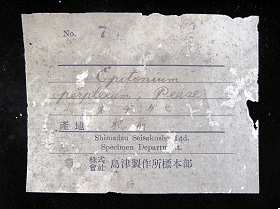 No. 7
Epitonium
perplexum, Pease
產地
Shimadzu Seisakusho Ltd.
Specimen Department.
株式會社 島津製作所標本部